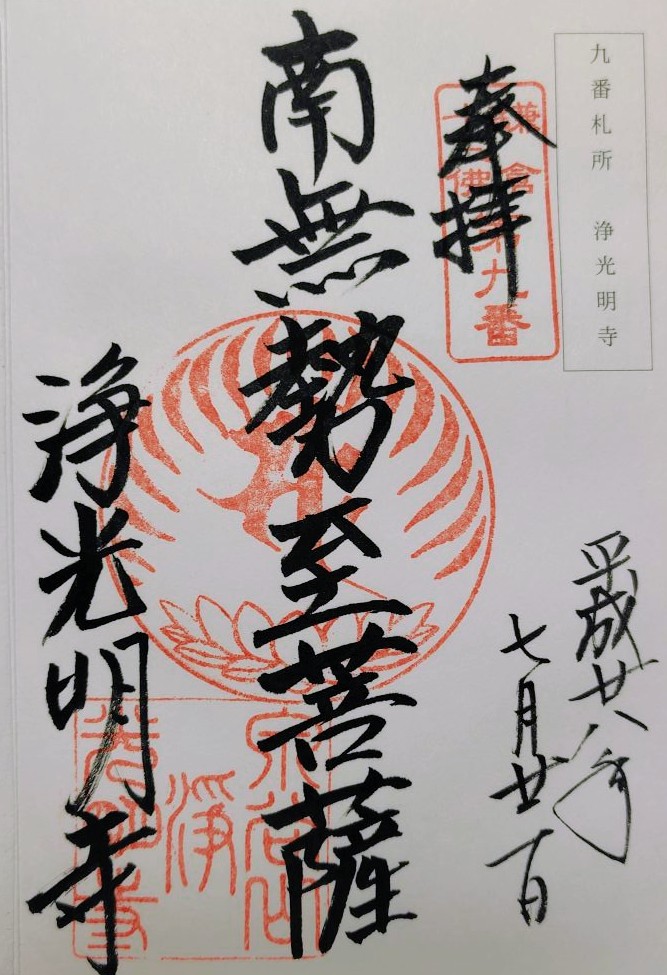 九番札所 浄光明寺
奉拝
鎌倉十三佛第九番
平成廿八年
七月廿一日
南無勢至菩薩
浄光明寺
泉谷山
浄
光明寺